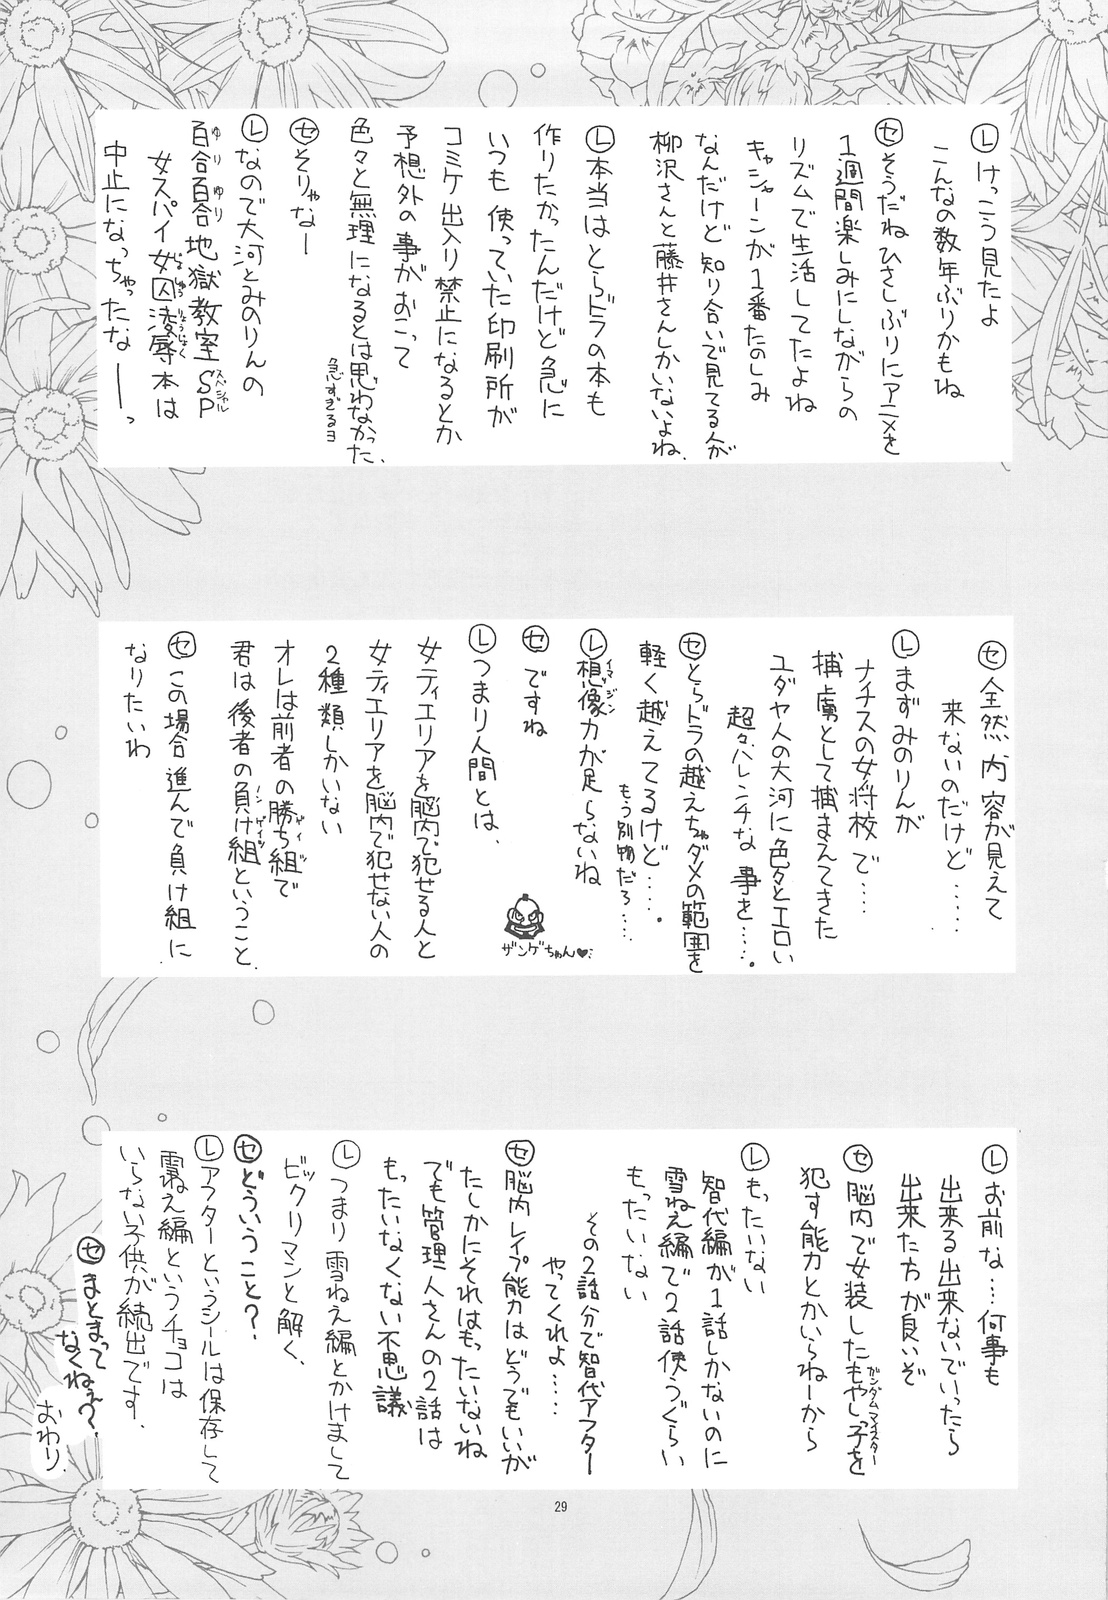 Ⓛけっこう見たよ
こんなの数年ぶりかもね
セそうだねひさしぶりにアニメを
1週間楽しみにしながらの
リズムで生活してたよね
キャシャーンが1番たのしみ
なんだけど知り合いで見てる人が
柳沢さんと藤井さんしかいないよね、
Ⓛ本当はとらドラの本も
作りたかったんだけど急に
いつも使っていた印刷所が
コミケ出入り禁止になるとか
予想外の事がおこって
色々と無理になるとは思わなかった、
急すぎるヨ
セそりゃなー
Ⓛなので大河とみのりんの
百合百合地獄教室SP
ゆりゆり
スペシャル
女スパイ女囚凌辱本は
じょしゅうりょうじょく
中止になっちゃったなーっ
セ全然内容が見えて
来ないのだけど....
Ⓛまずみのりんが
ナチスの女将校で....
捕虜として捕まえてきた
ユダヤ人の大河に色々とエロい
超々ハレンチな事を....。
セとらドラの越えちゃダメの範囲を
軽く越えてるけど....。
もう別物だろ....
Ⓛ想像力が足らないね
イマジン
セですね
ザンゲちゃん♥
Ⓛつまり人間とは、
女ティエリアを脳内で犯せる人と
女ティエリアを脳内で犯せない人の
2種類しかいない
オレは前者の勝ち組で
ゲイツ
君は後者の負け組ということ、
ノンゲイツ
セこの場合進んで負け組に
なりたいわ
Ⓛお前な...何事も
出来る出来ないでいったら
出来た方が良いぞ
セ脳内で女装したもやしっ子を
ガンダムマイスター
犯す能力とかいらねーから
Ⓛもったいない
智代編が1話しかないのに
雪ねえ編で2話使つぐらい
もったいない
その2話分で智代アフター
やってくれよ....
セ脳内レイプ能力はどうでもいいが
たしかにそれはもったいないね
でも管理人さんの2話は
もったいなくない不思議
Ⓛつまり雪ねえ編とかけまして
ビックリマンと解く、
セどういうこと?
Ⓛアフターというシールは保存して
雪ねえ編というチョコは
いらない子供が続出です.
セまとまって
なくねぇ?
おわり.
29